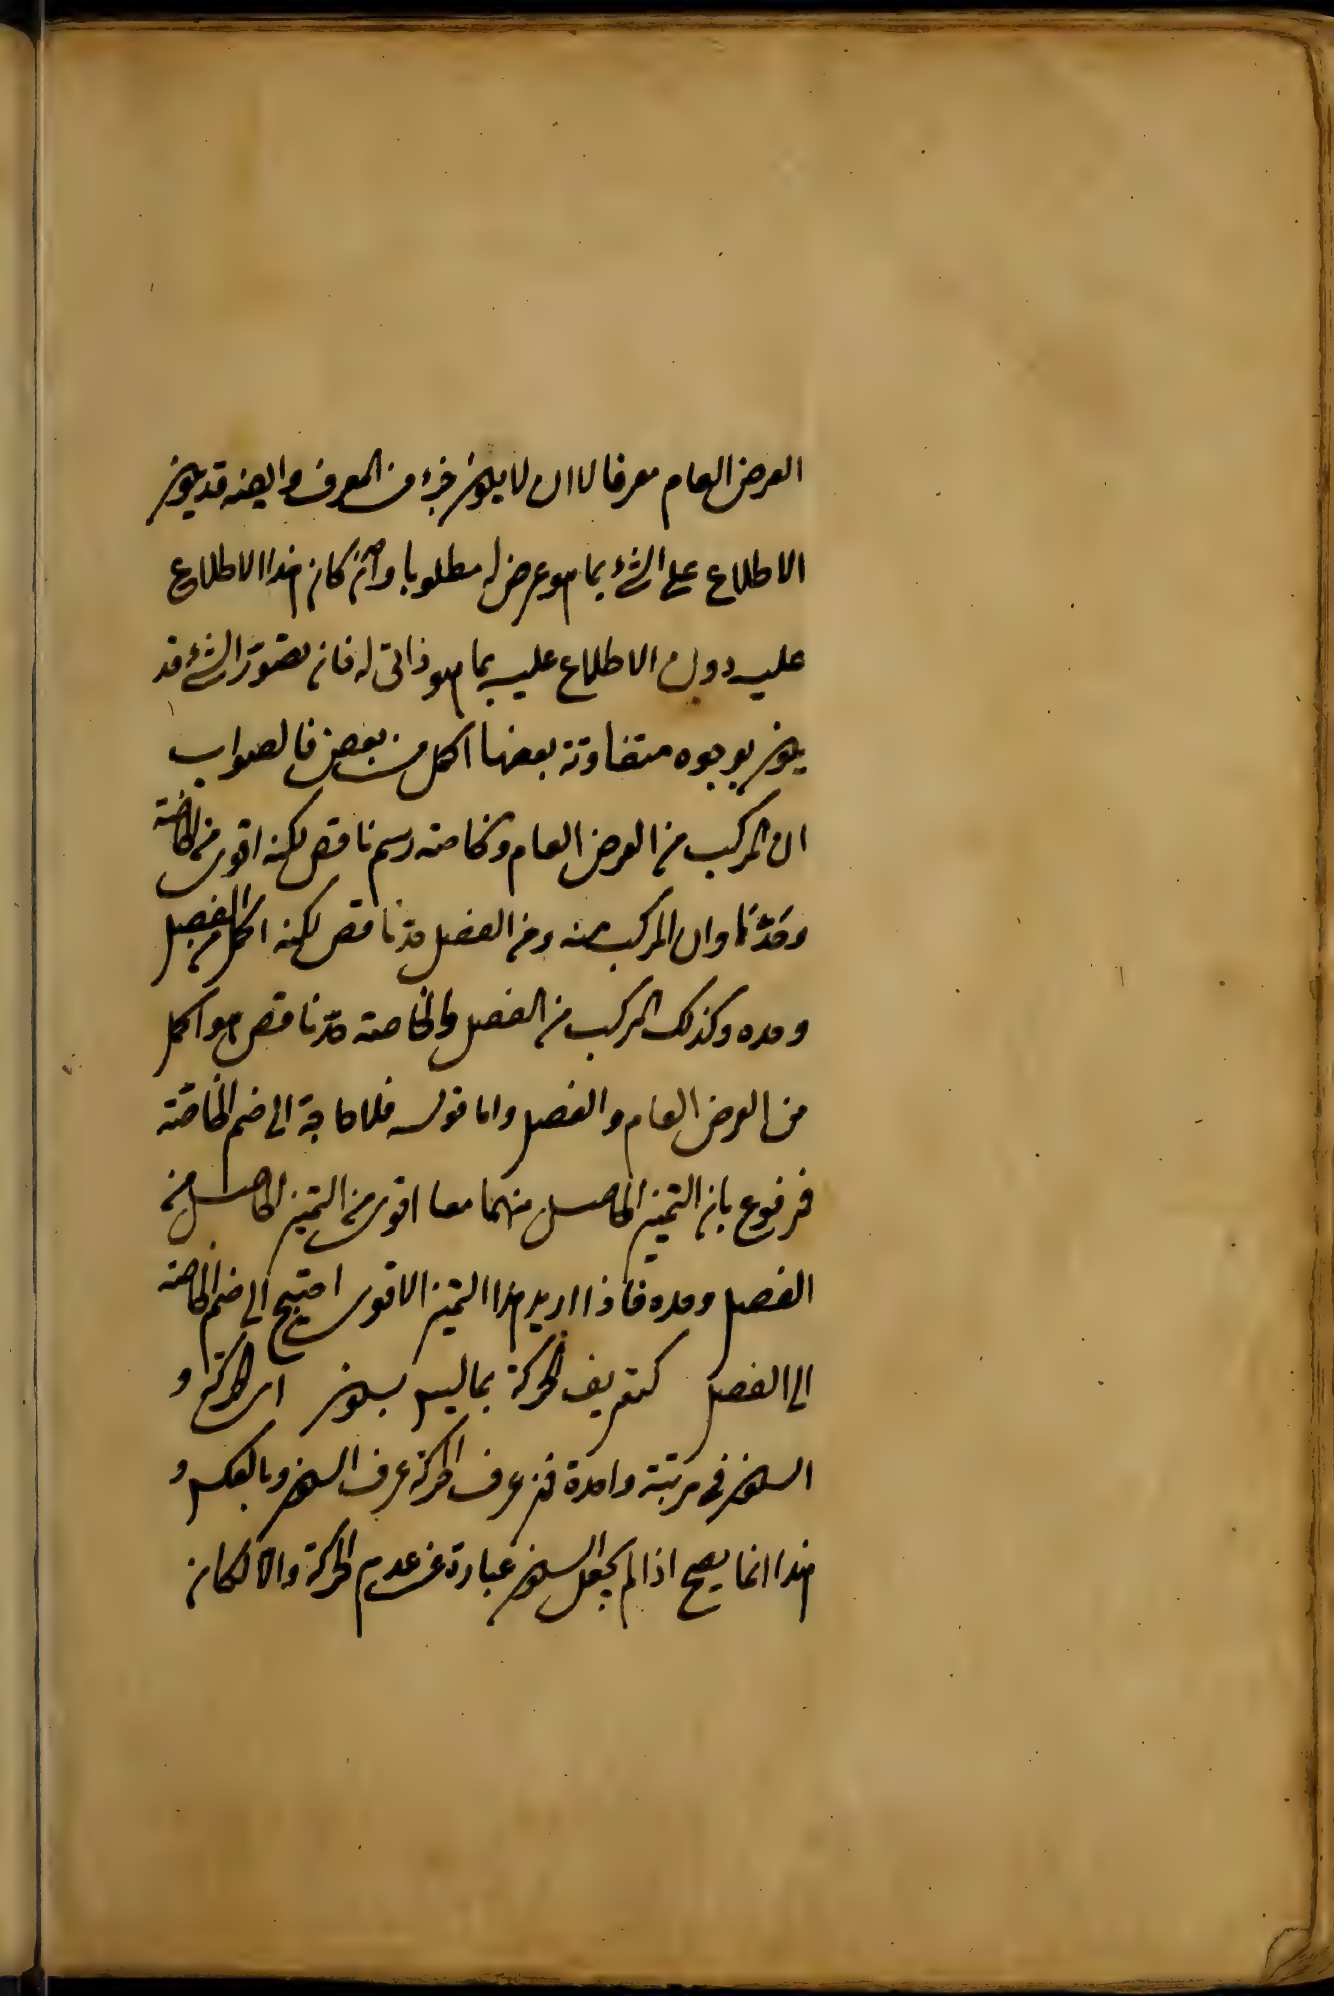 العرض العام معرفا لا ان لا يكون جزء من المعرف وايضه قد يكون
الاطلاع على الشئ بما هو عرض له مطلوبا وان كان هذا الاطلاع
عليه دون الاطلاع عليه بما هو ذاتى له فان تصوّر الشئ قد
يكون بوجوه متفاوتة بعضها اكمل من بعض فالصواب
ان المركب من العرض العام والخاصه رسم ناقص لكنه اقوى من الخاصّة
وحدها وان المركب منه ومن الفصل حدّ ناقص لكنه اكمل من الفصل
وحده وكذلك المركب من الفصل والخاصة حدّ ناقص هو اكمل
من العرض العام والفصل واما قوله فلا حاجة الى ضم الخاصّة
فمرفوع بان التميز الحاصل منهما معا اقوى من التميز الحاصل من
الفصل وحده فاذا اريد هذا التميز الاقوى احتيج الى ضم الخاصة
الى الفصل كتعريف الحركة بما ليس بسكون اى الحركة و
السكون فى مرتبة واحدة فمن عرف الحركة عرف السكون وبالعكس و
هذا انما يصح اذا لم يجعل السكون عبارة عن عدم الحركة والا لكان